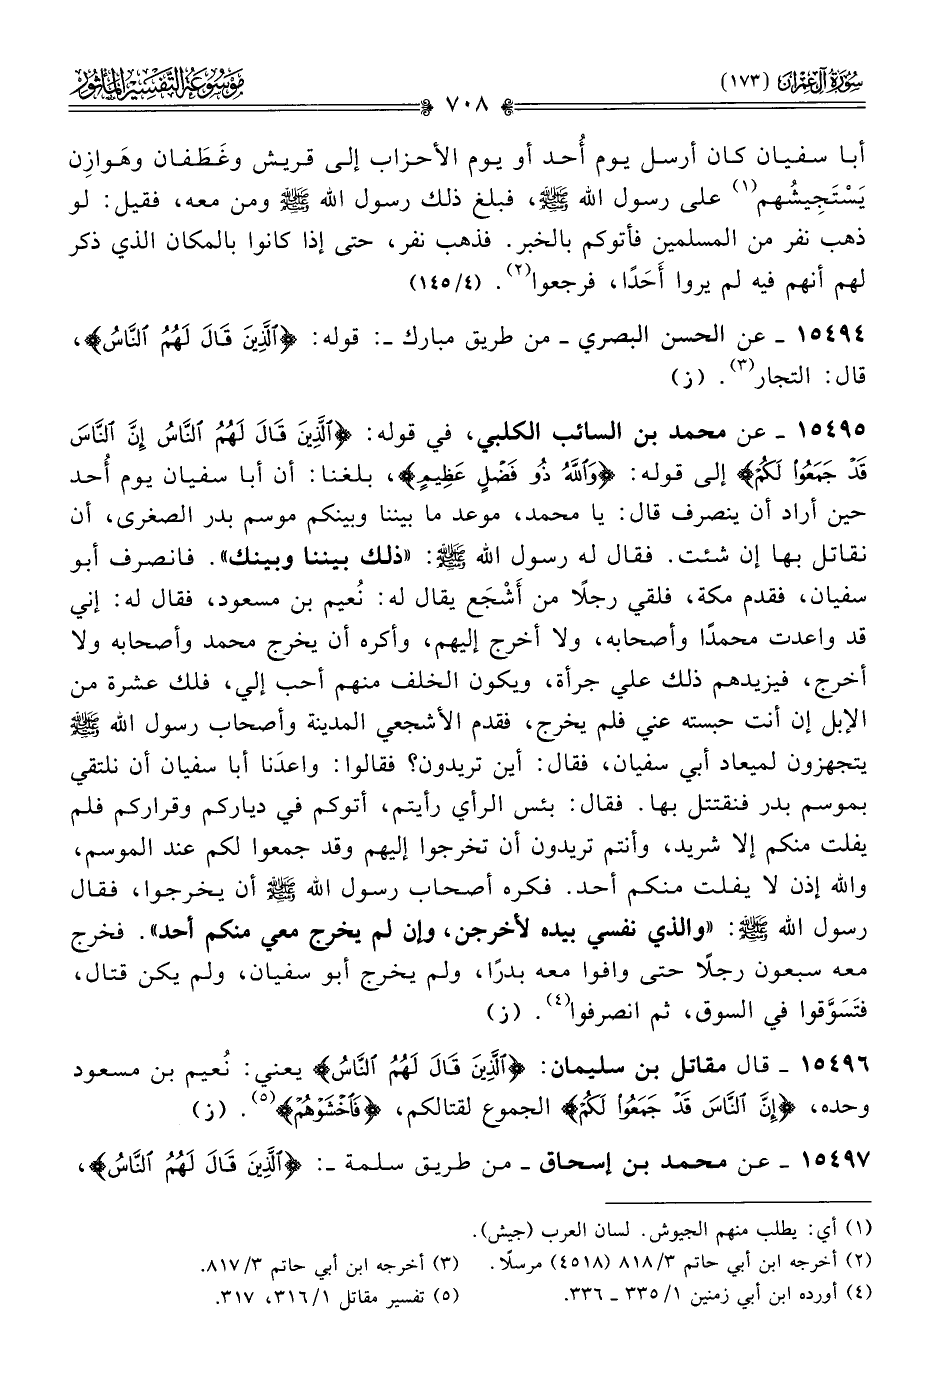 سُورَةُ آلِ عِمْرَان (١٧٣)
٧٠٨
مَوْسُوعَة التَّفْسِير المَأْثُور
أبا سفيان كان أرسل يوم أُحد أو يوم الأحزاب إلى قريش وغَطَفان وهَوازِن
يَسْتَجِيشُهم(١) على رسول الله ﷺ، فبلغ ذلك رسول الله ﷺ ومن معه، فقيل: لو
ذهب نفر من المسلمين فأتوكم بالخبر. فذهب نفر، حتى إذا كانوا بالمكان الذي ذكر
لهم أنهم فيه لم يروا أَحَدًا، فرجعوا(٢). (١٤٥/٤)
١٥٤٩٤ ـ عن الحسن البصري ـ من طريق مبارك ـ: قوله: ﴿ٱلَّذِينَ قَالَ لَهُمُ ٱلنَّاسُ﴾،
قال: التجار(٣). (ز)
١٥٤٩٥ ـ عن محمد بن السائب الكلبي، في قوله: ﴿ٱلَّذِينَ قَالَ لَهُمُ ٱلنَّاسُ إِنَّ ٱلنَّاسَ
قَدْ جَمَعُواْ لَكُمْ﴾ إلى قوله: ﴿وَٱللَّهُ ذُو فَضْلٍ عَظِيمٍ﴾، بلغنا: أن أبا سفيان يوم أُحد
حين أراد أن ينصرف قال: يا محمد، موعد ما بيننا وبينكم موسم بدر الصغرى، أن
نقاتل بها إن شئت. فقال له رسول الله ﷺ: «ذلك بيننا وبينك». فانصرف أبو
سفيان، فقدم مكة، فلقي رجلًا من أَشْجَع يقال له: نُعيم بن مسعود، فقال له: إني
قد واعدت محمدًا وأصحابه، ولا أخرج إليهم، وأكره أن يخرج محمد وأصحابه ولا
أخرج، فيزيدهم ذلك علي جرأة، ويكون الخلف منهم أحب إلي، فلك عشرة من
الإبل إن أنت حبسته عني فلم يخرج، فقدم الأشجعي المدينة وأصحاب رسول الله ﷺ
يتجهزون لميعاد أبي سفيان، فقال: أين تريدون؟ فقالوا: واعدَنا أبا سفيان أن نلتقي
بموسم بدر فنقتتل بها. فقال: بئس الرأي رأيتم، أتوكم في دياركم وقراركم فلم
يفلت منكم إلا شريد، وأنتم تريدون أن تخرجوا إليهم وقد جمعوا لكم عند الموسم،
والله إذن لا يفلت منكم أحد. فكره أصحاب رسول الله ﷺ أن يخرجوا، فقال
رسول الله ﷺ: «والذي نفسي بيده لأخرجن، وإن لم يخرج معي منكم أحد». فخرج
معه سبعون رجلًا حتى وافوا معه بدرًا، ولم يخرج أبو سفيان، ولم يكن قتال،
فتَسَوَّقوا في السوق، ثم انصرفوا(٤). (ز)
١٥٤٩٦ ـ قال مقاتل بن سليمان: ﴿ٱلَّذِينَ قَالَ لَهُمُ ٱلنَّاسُ﴾ يعني: نُعيم بن مسعود
وحده، ﴿إِنَّ ٱلنَّاسَ قَدْ جَمَعُواْ لَكُمْ﴾ الجموع لقتالكم، ﴿فَٱخْشَوْهُمْ﴾(٥). (ز)
١٥٤٩٧ ـ عن محمد بن إسحاق ـ من طريق سلمة ـ: ﴿ٱلَّذِينَ قَالَ لَهُمُ ٱلنَّاسُ﴾،
(١) أي: يطلب منهم الجيوش. لسان العرب (جيش).
(٢) أخرجه ابن أبي حاتم ٨١٨/٣ (٤٥١٨) مرسلًا. (٣) أخرجه ابن أبي حاتم ٨١٧/٣.
(٤) أورده ابن أبي زمنين ٣٣٥/١ ـ ٣٣٦. (٥) تفسير مقاتل ٣١٦/١، ٣١٧.